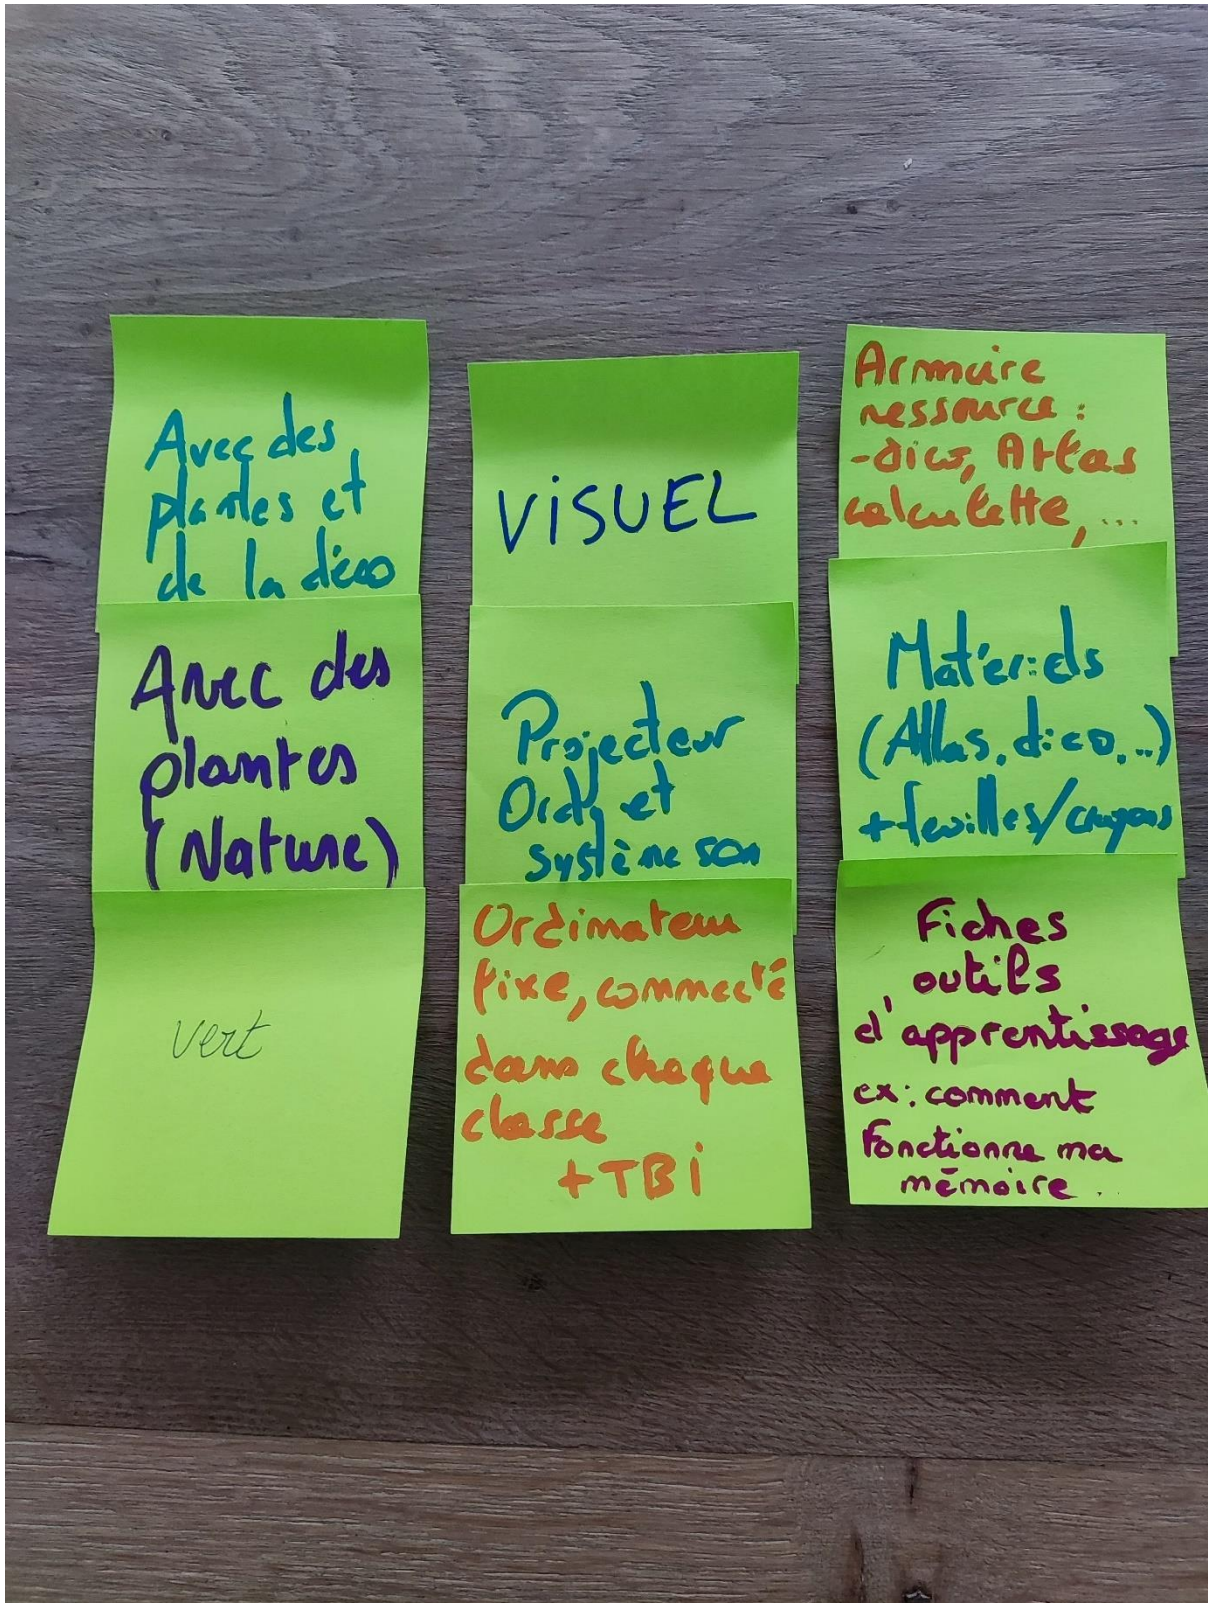 Avec des
plantes et
de la déco
Avec des
plantes
(Nature)
vert
VISUEL
Projecteur
Ordi et
système son
Ordinateur
fixe, connecté
dans chaque
classe
+ TBI
Armoire
ressource :
- dico, Atlas
calculette, ...
Matériels
(Atlas, dico, ...)
+ feuilles/crayons
Fiches
outils
d'apprentissage
ex : comment
fonctionne ma
mémoire...